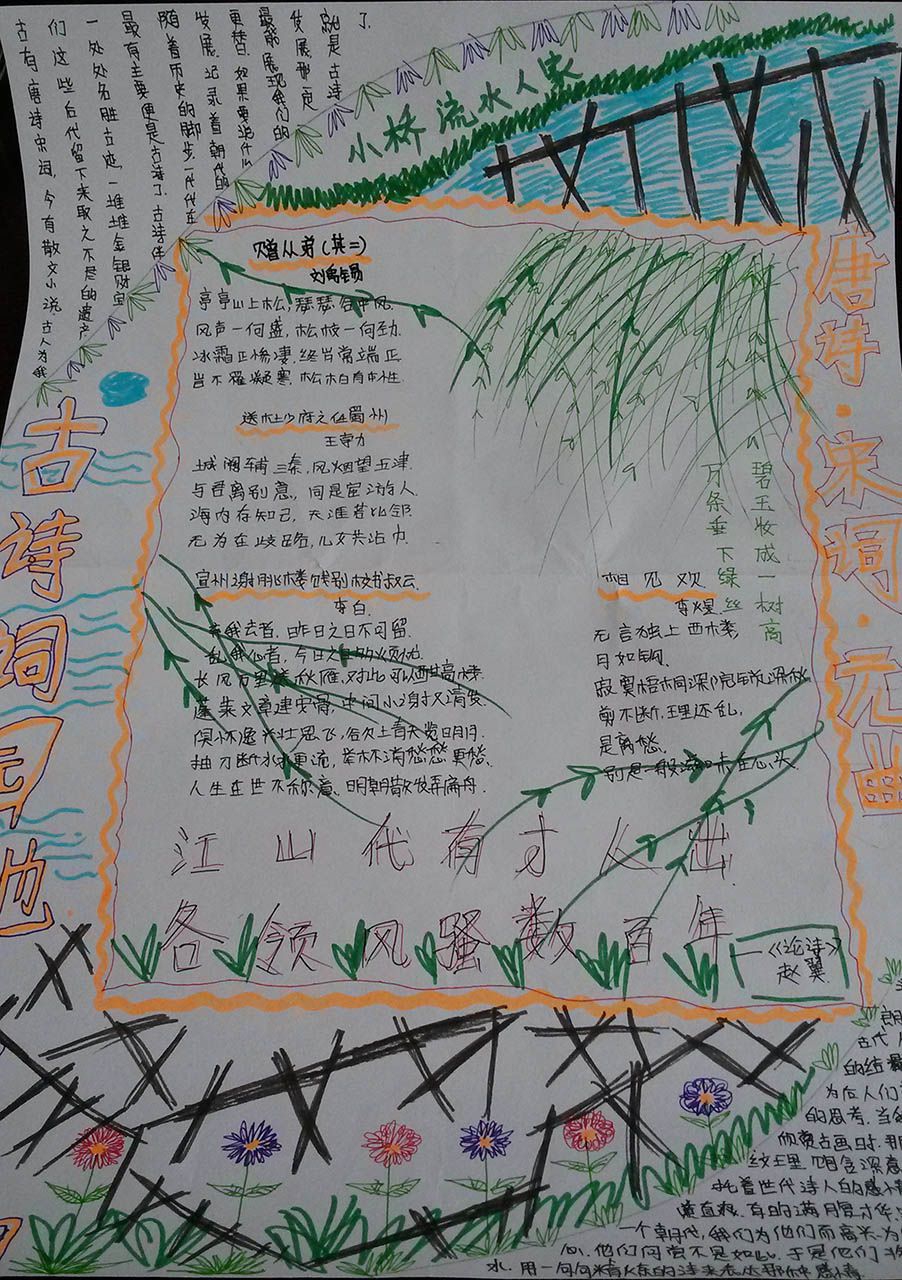 古有唐诗宋词,今有散文小说,古人为我
们这些后代留下来取之不尽的遗产
一处处名胜古迹,一堆堆金银财宝
最有主要便是古诗了,古诗伴
随着历史的脚步,一代代在
发展,记录着朝代的
更替,如果要说什么
最能展现我们的
发展,那一定
就是古诗
了.
小桥流水人家
唐诗·宋词·元曲
古诗词园地
赠从弟(其二)
刘禹锡
亭亭山上松,瑟瑟谷中风.
风声一何盛,松枝一何劲.
冰霜正惨凄,终岁常端正.
岂不罹凝寒,松柏有本性.
送杜少府之任蜀州
王勃
城阙辅三秦,风烟望五津.
与君离别意,同是宦游人.
海内存知己,天涯若比邻.
无为在歧路,儿女共沾巾.
宣州谢朓楼饯别校书叔云.
李白.
弃我去者,昨日之日不可留.
乱我心者,今日之日多烦忧.
长风万里送秋雁,对此可以酣高楼.
蓬莱文章建安骨,中间小谢又清发.
俱怀逸兴壮思飞,欲上青天览明月.
抽刀断水水更流,举杯消愁愁更愁.
人生在世不称意,明朝散发弄扁舟.
碧玉妆成一树高
万条垂下绿丝
相见欢
李煜.
无言独上西楼,
月如钩.
寂寞梧桐深院锁深秋
剪不断,理还乱,
是离愁.
别是一般滋味在心头.
江山代有才人出
各领风骚数百年
—《论诗》
赵翼
古代人
的结
为后人们
的思考.当我
倾夜古画时,那
纹理饱含深意
托着世代诗人的感情
有的满月夸才华
一个朝代,我们为他们而高兴,为
心.他们同常不是如此,于是他们
水.用一句句精炼的诗来表达那种感情